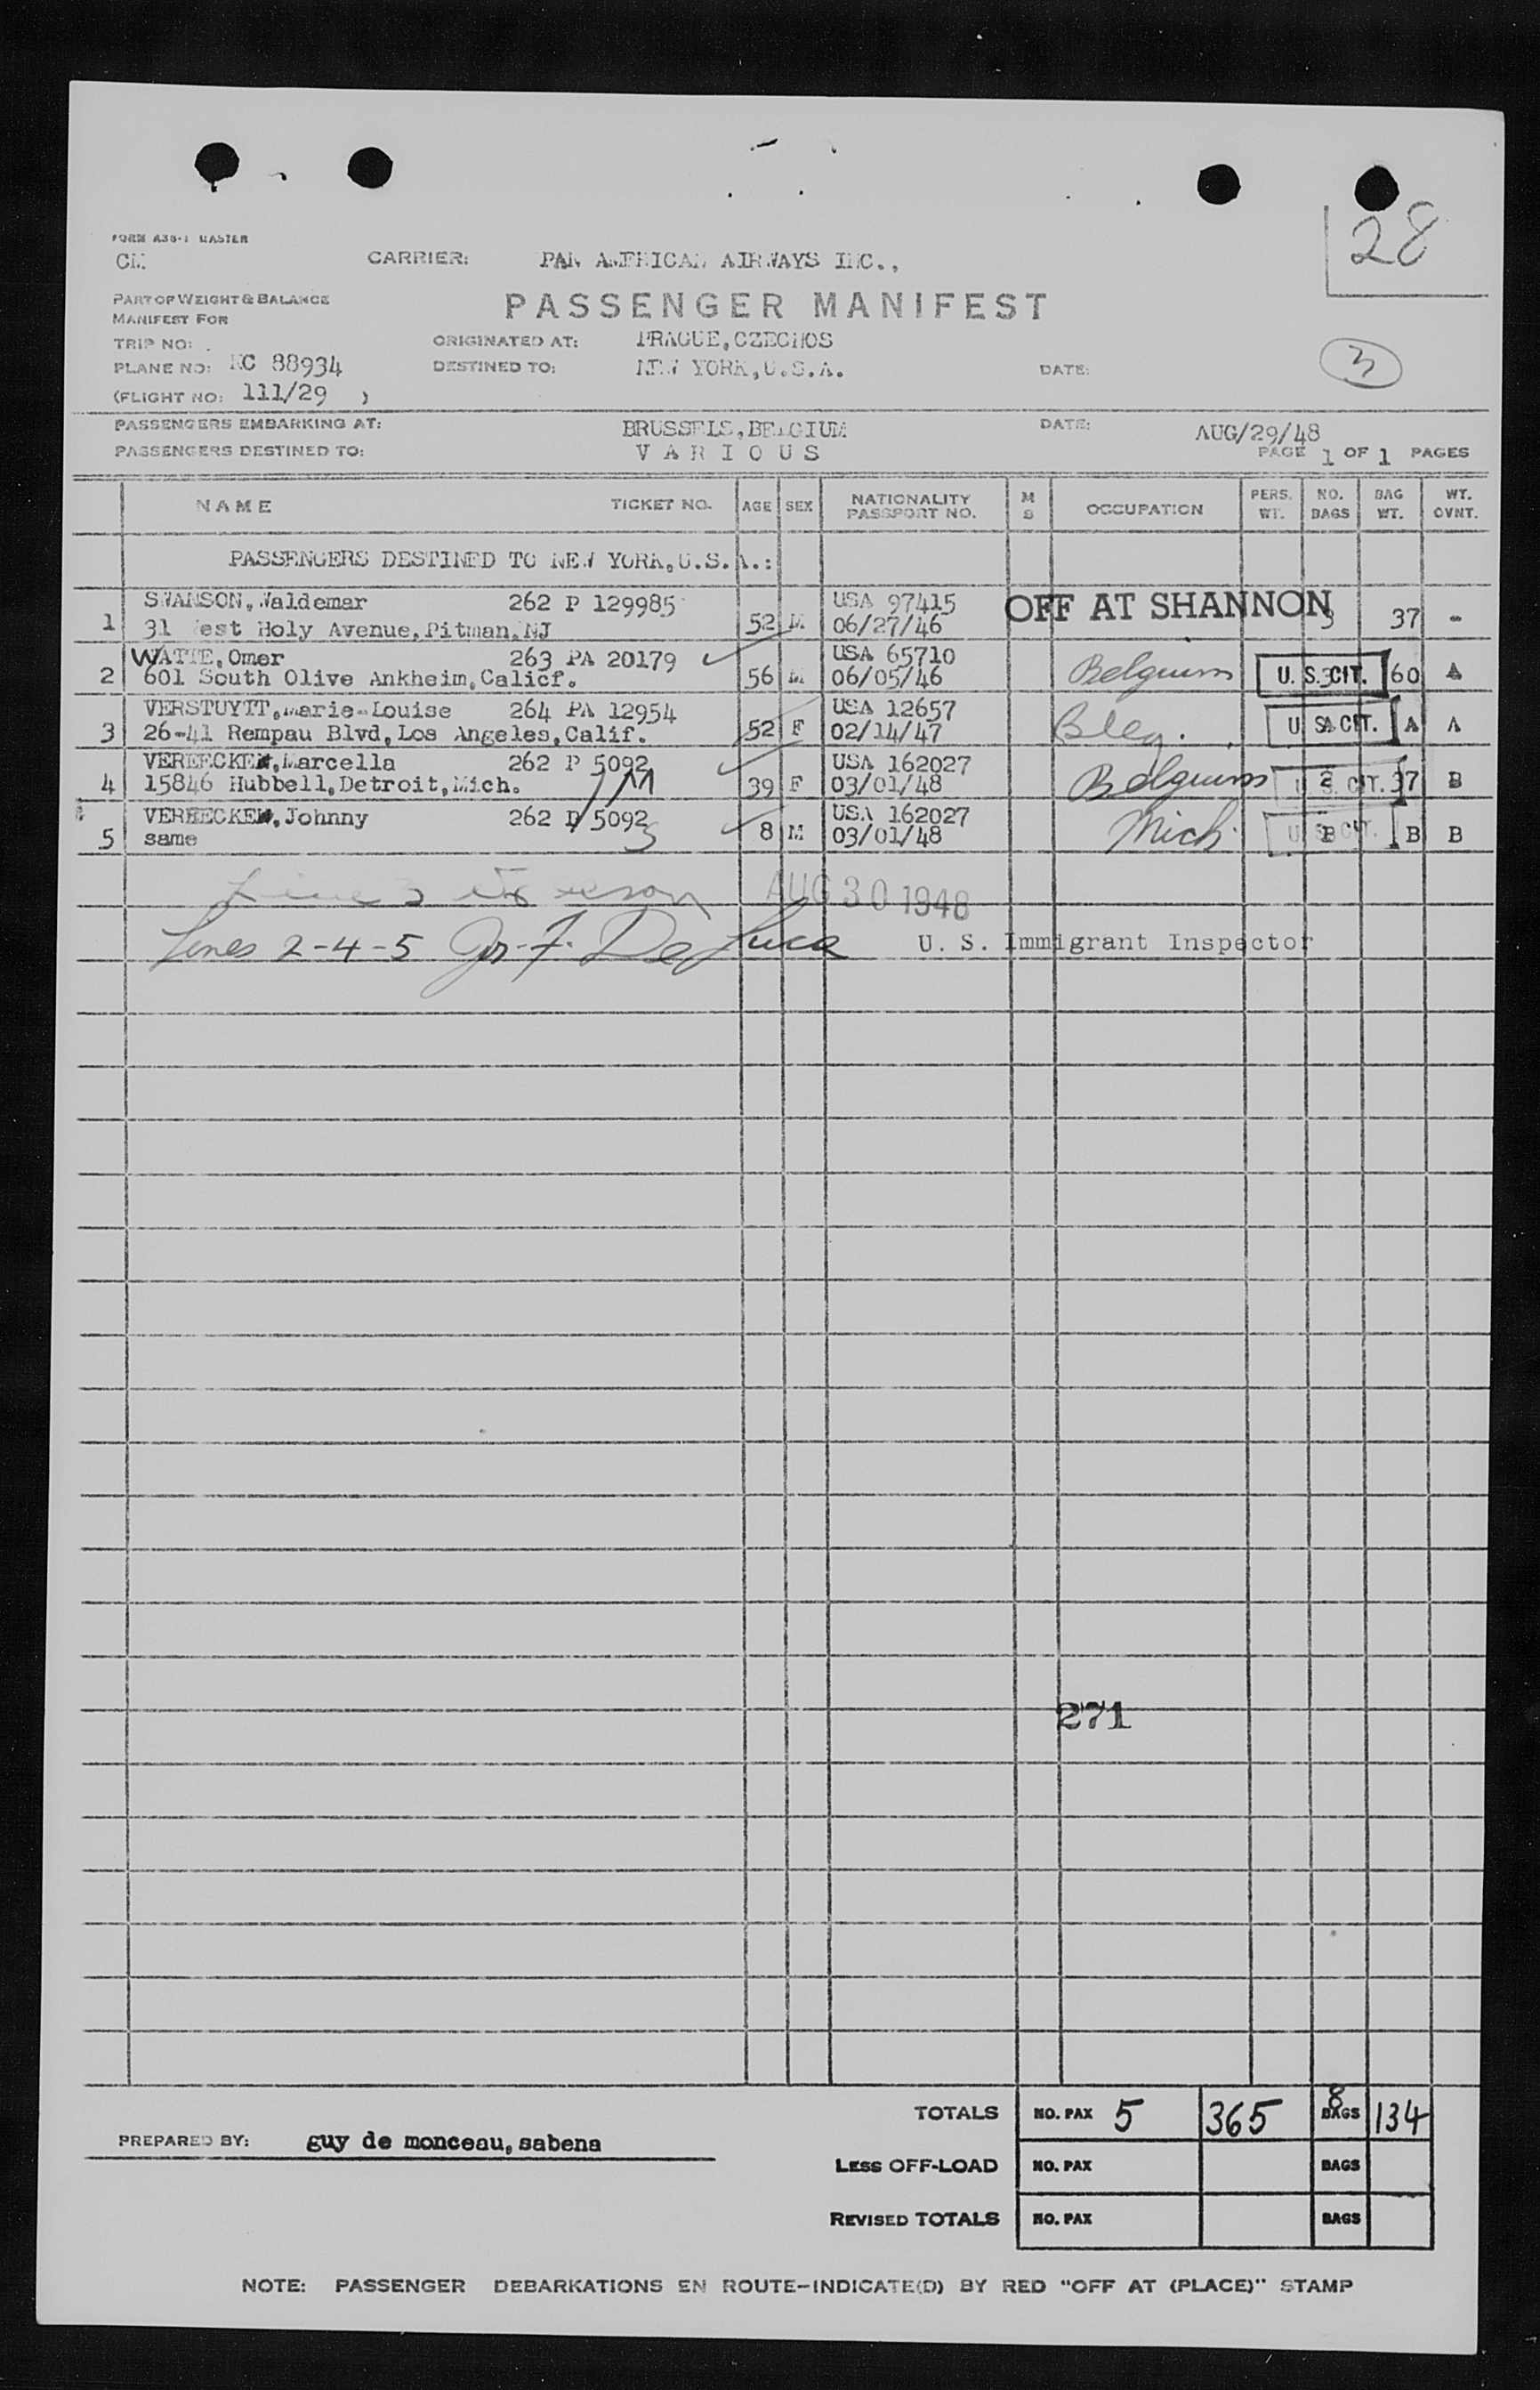 28
FORM A38-1 MASTER
CARRIER: PAN AMERICAN AIRWAYS INC.,
PART OF WEIGHT & BALANCE
MANIFEST FOR
PASSENGER MANIFEST
TRIP NO:
ORIGINATED AT: PRAGUE, CZECHOS
PLANE NO: NC 88934
DESTINED TO: NEW YORK, U.S.A.
DATE:
3
(FLIGHT NO: 111/29 )
PASSENGERS EMBARKING AT: BRUSSELS, BELGIUM DATE: AUG/29/48
PASSENGERS DESTINED TO: V A R I O U S PAGE 1 OF 1 PAGES
NAME TICKET NO. AGE SEX NATIONALITY PASSPORT NO. M S OCCUPATION PERS. WT. NO. BAGS BAG WT. WT. OVNT.
PASSENGERS DESTINED TO NEW YORK, U.S.A.:
SWANSON, Waldemar 262 P 129985 USA 97415 OFF AT SHANNON
1 31 West Holy Avenue, Pitman, NJ 52 M 06/27/46 3 37 -
WATTE, Omer 263 PA 20179 USA 65710
2 601 South Olive Ankheim, Calicf. 56 M 06/05/46 Belgium U. S. CIT. 3 60 A
VERSTUYTT, Marie-Louise 264 PA 12954 USA 12657
3 26-41 Rempau Blvd, Los Angeles, Calif. 52 F 02/14/47 Bleg. U S CIT. A A A
VEREECKEN, Marcella 262 P 5092 USA 162027
4 15846 Hubbell, Detroit, Mich. 39 F 03/01/48 Belgium U S CIT. 2 37 B
VEREECKEN, Johnny 262 P 5092 USA 162027
5 same 3 8 M 03/01/48 Mich. U S CIT. B B B
AUG 30 1948
Lines 2-4-5 Jos. F. De Luca U. S. Immigrant Inspector
271
TOTALS NO. PAX 5 365 8 BAGS 134
PREPARED BY: guy de monceau, sabena
LESS OFF-LOAD NO. PAX BAGS
REVISED TOTALS NO. PAX BAGS
NOTE: PASSENGER DEBARKATIONS EN ROUTE-INDICATE(D) BY RED "OFF AT (PLACE)" STAMP